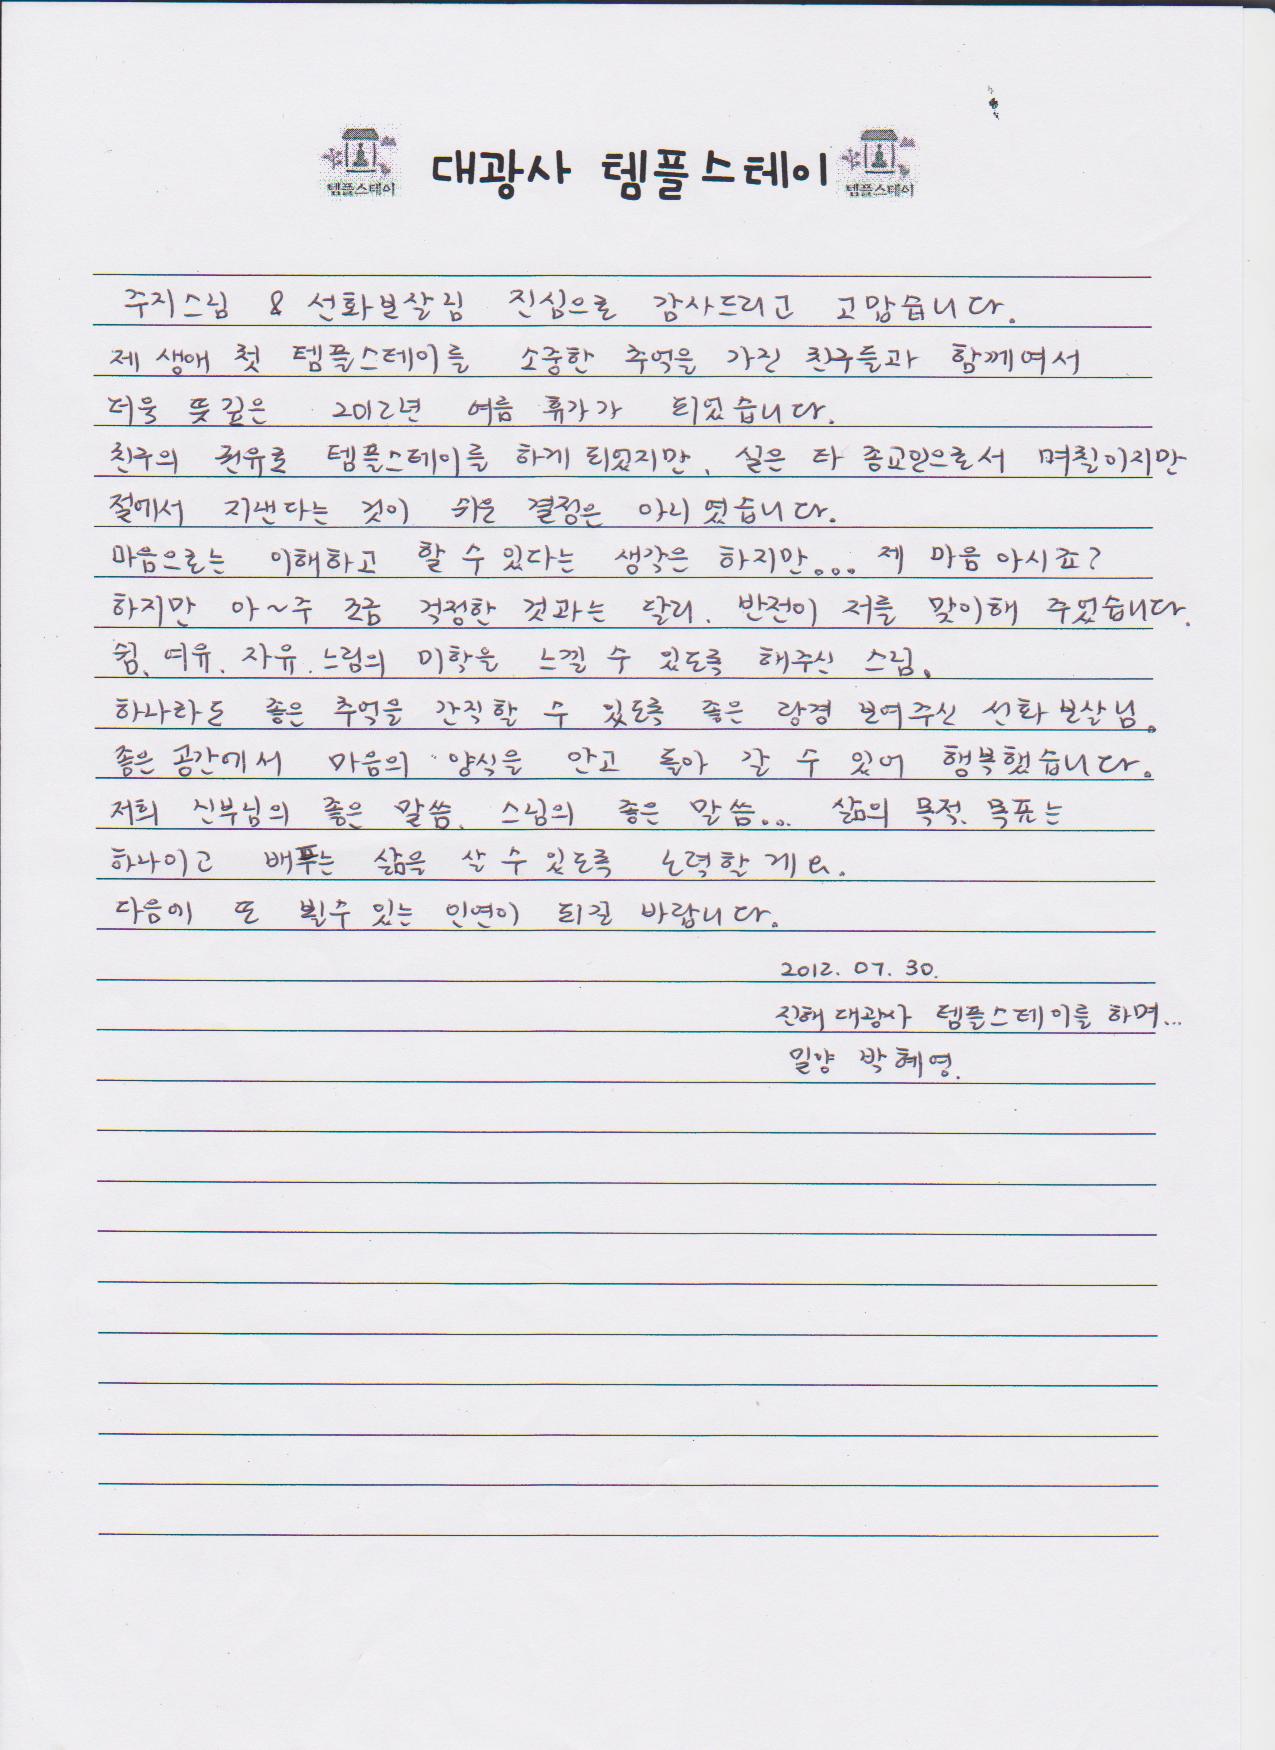 템플스테이 대광사 템플스테이 템플스테이
주지스님 & 선화보살님 진심으로 감사드리고 고맙습니다.
제 생애 첫 템플스테이를 소중한 추억을 가진 친구들과 함께여서
더욱 뜻깊은 2012년 여름 휴가가 되었습니다.
친구의 권유로 템플스테이를 하게 되었지만, 실은 타 종교인으로서 며칠이지만
절에서 지낸다는 것이 쉬운 결정은 아니였습니다.
마음으로는 이해하고 할 수 있다는 생각은 하지만... 제 마음 아시죠?
하지만 아~주 조금 걱정한 것과는 달리, 반전이 저를 맞이해 주었습니다.
쉼, 여유, 자유, 느림의 미학을 느낄 수 있도록 해주신 스님.
하나라도 좋은 추억을 간직할 수 있도록 좋은 광경 보여주신 선화 보살님.
좋은 공간에서 마음의 양식을 안고 돌아 갈 수 있어 행복했습니다.
저희 신부님의 좋은 말씀, 스님의 좋은 말씀... 삶의 목적, 목표는
하나이고 배푸는 삶을 살 수 있도록 노력할게요.
다음에 또 뵐수 있는 인연이 되길 바랍니다.
2012. 07. 30.
진해 대광사 템플스테이를 하며...
밀양 박혜영.